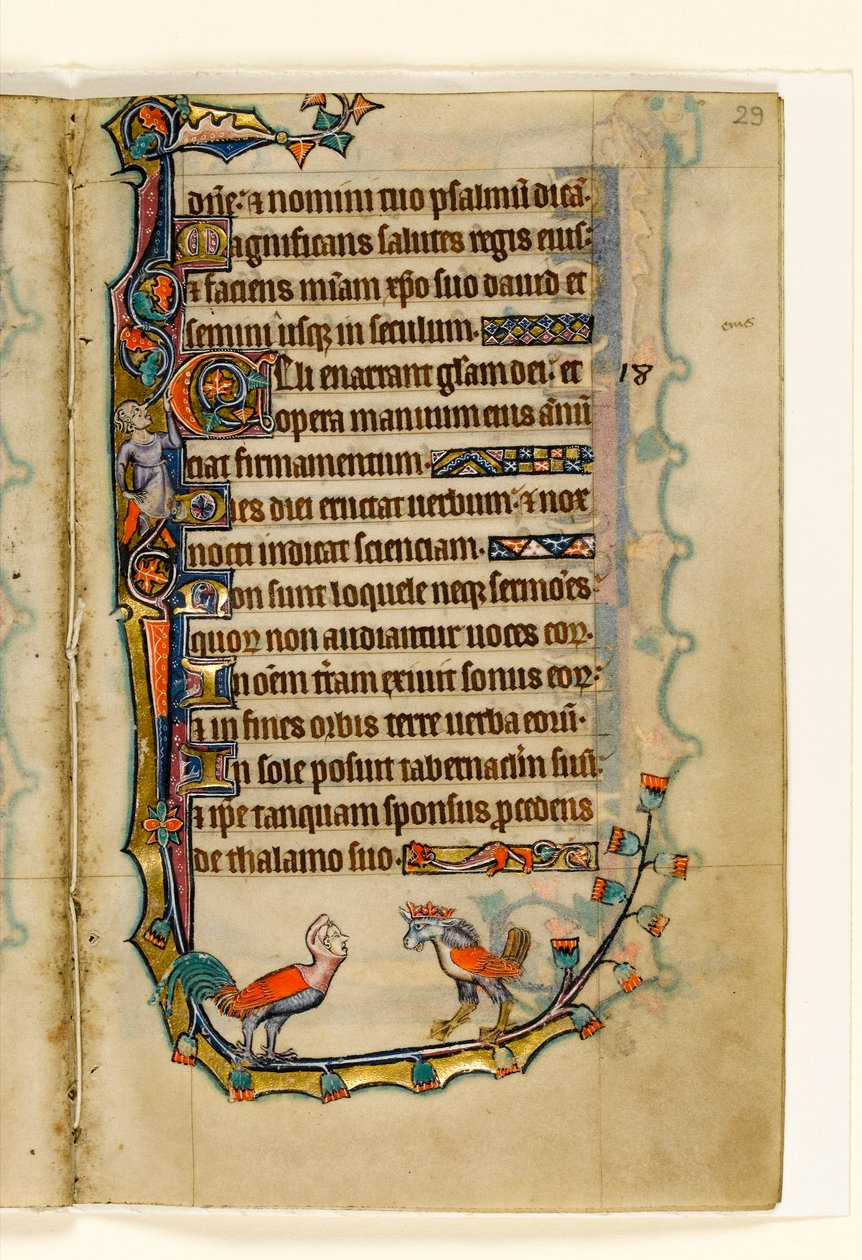 29
dn̄e: ⁊ nomini tuo psalmū dicā.
Magnificans salutes regis eius:
⁊ faciens mīam xp̄o suo dauid et
semini usqꝫ in seculum.
Celi enarrant gl̄am dei: et
18
opera manuum eius ānū
ciat firmamentum.
Dies diei eructat uerbum: ⁊ nox
nocti indicat scienciam.
Non sunt loquele neqꝫ sermōes
quoꝝ non audiantur uoces eoꝝ.
In oēm tr̄am exiuit sonus eoꝝ:
⁊ in fines orbis terre uerba eoꝝ.
In sole posuit tabernacl̄m suū:
⁊ ip̄e tanquam sponsus ꝓcedens
de thalamo suo.